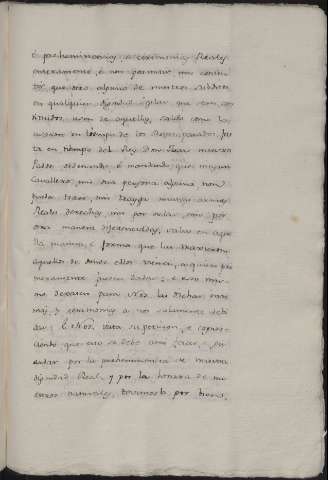 é preheminencias, e cerimonias Reales
enteramente, é non permitir nin consin
tir que otro alguno de nuestros subditos
en qualquier dignidad que sean con cos
tituidos, usen de aquellas, salvo como lo
usaron en tiempo de los Reyes pasados fas
ta en tiempo del Rey Don Juan nuestro
Padre ordenando, é mandando que ningun
Cavallero, nin otra persona alguna non
pueda traer, nin trayga ningunas armas
Reales derechas, nin por orlar, nin por
otra manera diferenciadas, salvo en aque
lla manera, é forma que las traxieron
aquellos de donde ellos vienen, a quien pri
meramente fueron dadas; é eso mis
mo dexasen para Nos las dichas
é cerimonias a nos solamente debi
das: é Nos, vista su peticion, é conos
ciendo que esto se debe ansi facer, é por
estar por la preheminencia de nuestra
dignidad Real, y por la honrra de nu
estros naturales, tovimoslo por bien,